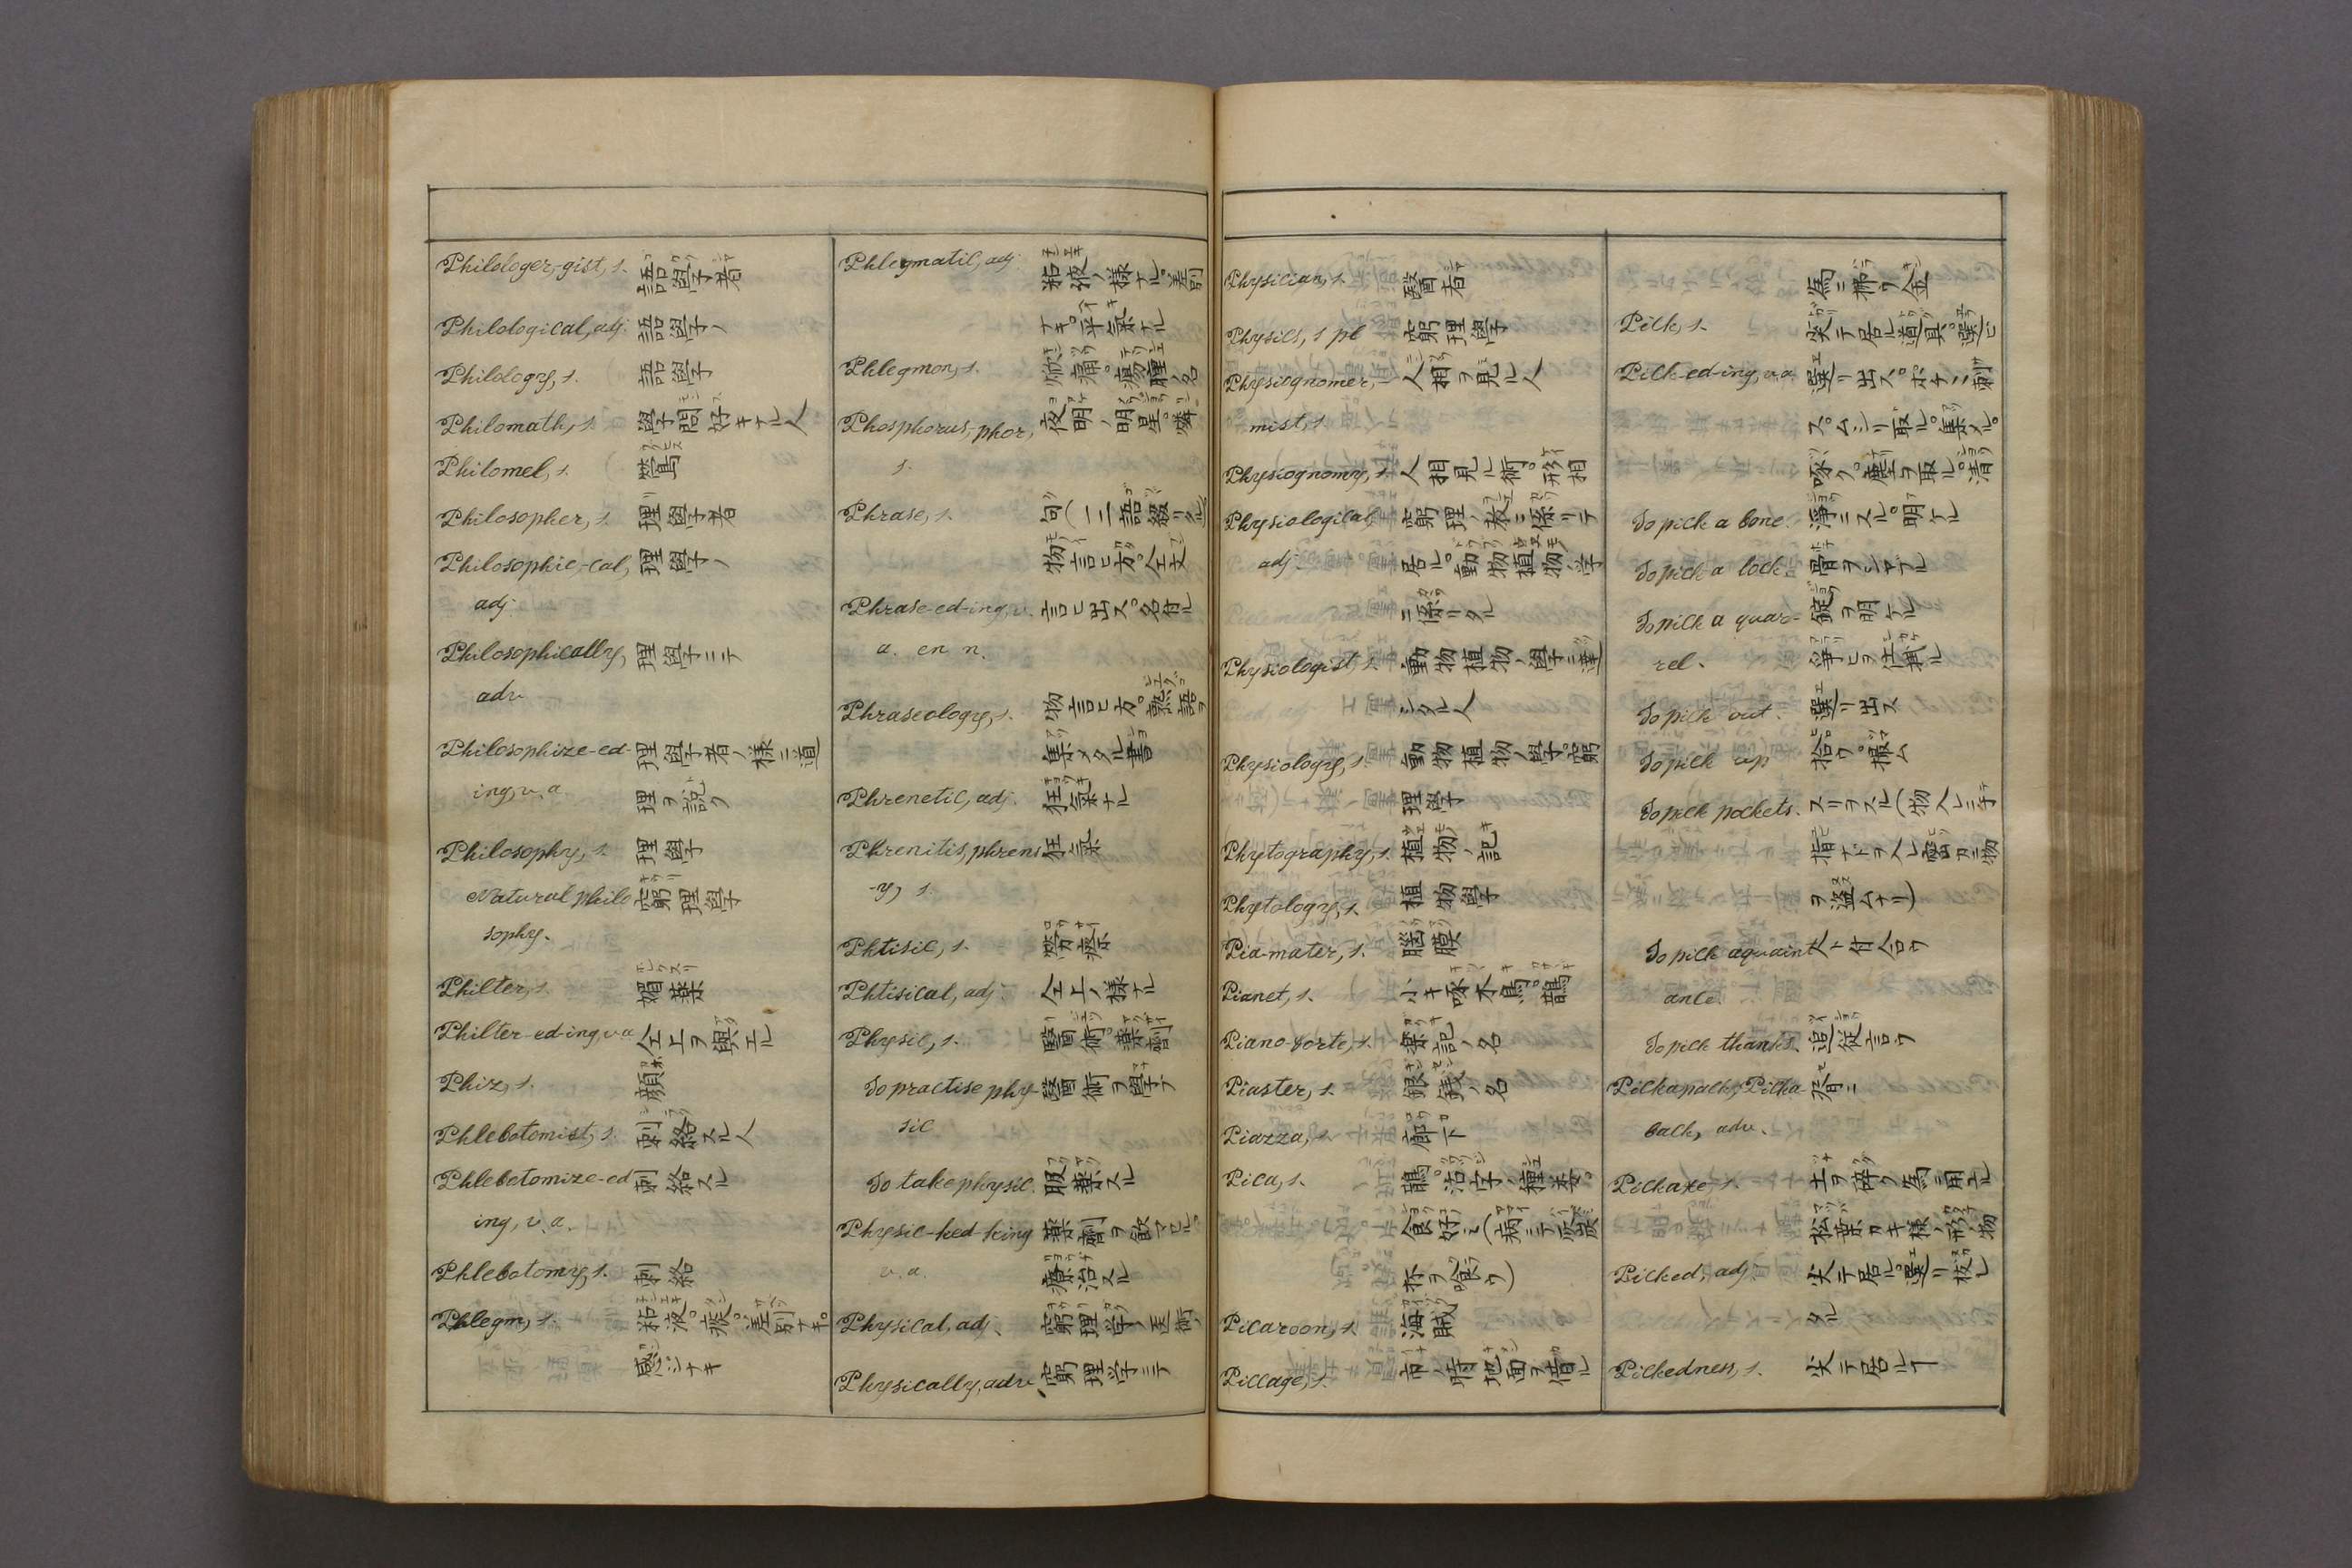 Philologer,-gist, s. 語學者
Philological, adj. 語學ノ
Philology, s. 語學
Philomath, s. 學問好キナル人
Philomel, s. 鶯
Philosopher, s. 理學者
Philosophic,-cal, 理學ノ
adj.
Philosophically, 理學ニテ
adv.
Philosophize-ed- 理學者ノ様ニ道
ing, v. a. 理ヲ説ク
Philosophy, s. 理學
Natural philo 窮理學
sophy.
Philter, s. 媚薬
Philter-ed-ing, v.a 仝上ヲ與エル
Phiz, s. 顔
Phlebotomist, s. 刺絡スル人
Phlebotomize-ed 刺絡スル
ing, v. a.
Phlebotomy, s. 刺絡
Phlegm, s. 粘液。痰。差別ナキ。
感ジナキ
Phlegmatic, adj. 粘液ノ様ナル。差別
ナキ。平氣ナル
Phlegmon, s. 焮痛。瘍腫ノ名
Phosphorus,-phor, 夜明ノ明星。燐
s.
Phrase, s. 句(一二語綴リタル)
物言ヒ方。仝文
Phrase-ed-ing, v. 言ヒ出ス。名付ル
a. en n.
Phraseology, s. 物言ヒ方。熟語ヲ
集メタル書
Phrenetic, adj. 狂氣ナル
Phrenitis, phrens 狂氣
-y, s.
Phtisic, s. 勞瘵
Phtisical, adj. 仝上ノ様ナル
Physic, s. 醫術。薬劑
To practise phy- 醫術ヲ學ブ
sic
To take physic. 服薬スル
Physic-ked-king 薬劑ヲ飲マセル。
v. a. 療治スル
Physical, adj. 窮理学ノ。医術ノ
Physically, adv. 窮理学ニテ
Physician, s. 醫者
Physics, s. pl 窮理學
Physiognomer,- 人相ヲ見ル人
mist, s.
Physiognomy, s. 人相見ル術。形相
Physiological, 窮理ノ教ニ係リテ
adj. 居ル。動物植物ノ学
ニ係リタル
Physiologist, s. 動物植物ノ學ニ達
シタル人
Physiology, s. 動物植物ノ學。窮
理學
Phytography, s. 植物ノ記
Phytology, s. 植物學
Pia-mater, s. 腦膜
Pianet, s. 小キ啄木鳥。鵲
Piano-forte, s. 楽記ノ名
Piaster, s. 銀錢ノ名
Piazza, s. 廊下
Pica, s. 鵲。活字ノ種類。
食好ミ(病ニテ
ヲ喰ウ)
Picaroon, s. 海賊
Piccage, s. 市ノ時地面ヲ借ル
為ニ拂ウ金
Pick, s. 尖テ居ル道具。選ビ
Pick-ed-ing, v.a. 選リ出ス。ホナニ刺
ス。ムシリ取ル。集メル。
啄ク。塵ヲ取ル。清
浄ニスル。明ケル
To pick a bone. 骨ヲシヤブル
To pick a lock. 錠ヲ明ケル
To pick a quar- 争ヒヲ仕掛ル
rel.
To pick out. 選リ出ス
To pick up 拾ウ。撮ム
To pick pockets. スリヲスル(物入レニ手
指ナドヲ入レ密カニ物
ヲ盗ムナリ)
To pick aquaint 人ト付合ウ
ance.
To pick thanks. 追従言ウ
Pickapack, Picka- 脊ニ
back, adv.
Pickaxe, s. 土ヲ碎ク為ニ用ル
松葉カキ様ノ形ノ物
Picked, adj. 尖テ居ル。選リ抜レ
タル
Pickedness, s. 尖テ居ルヿ